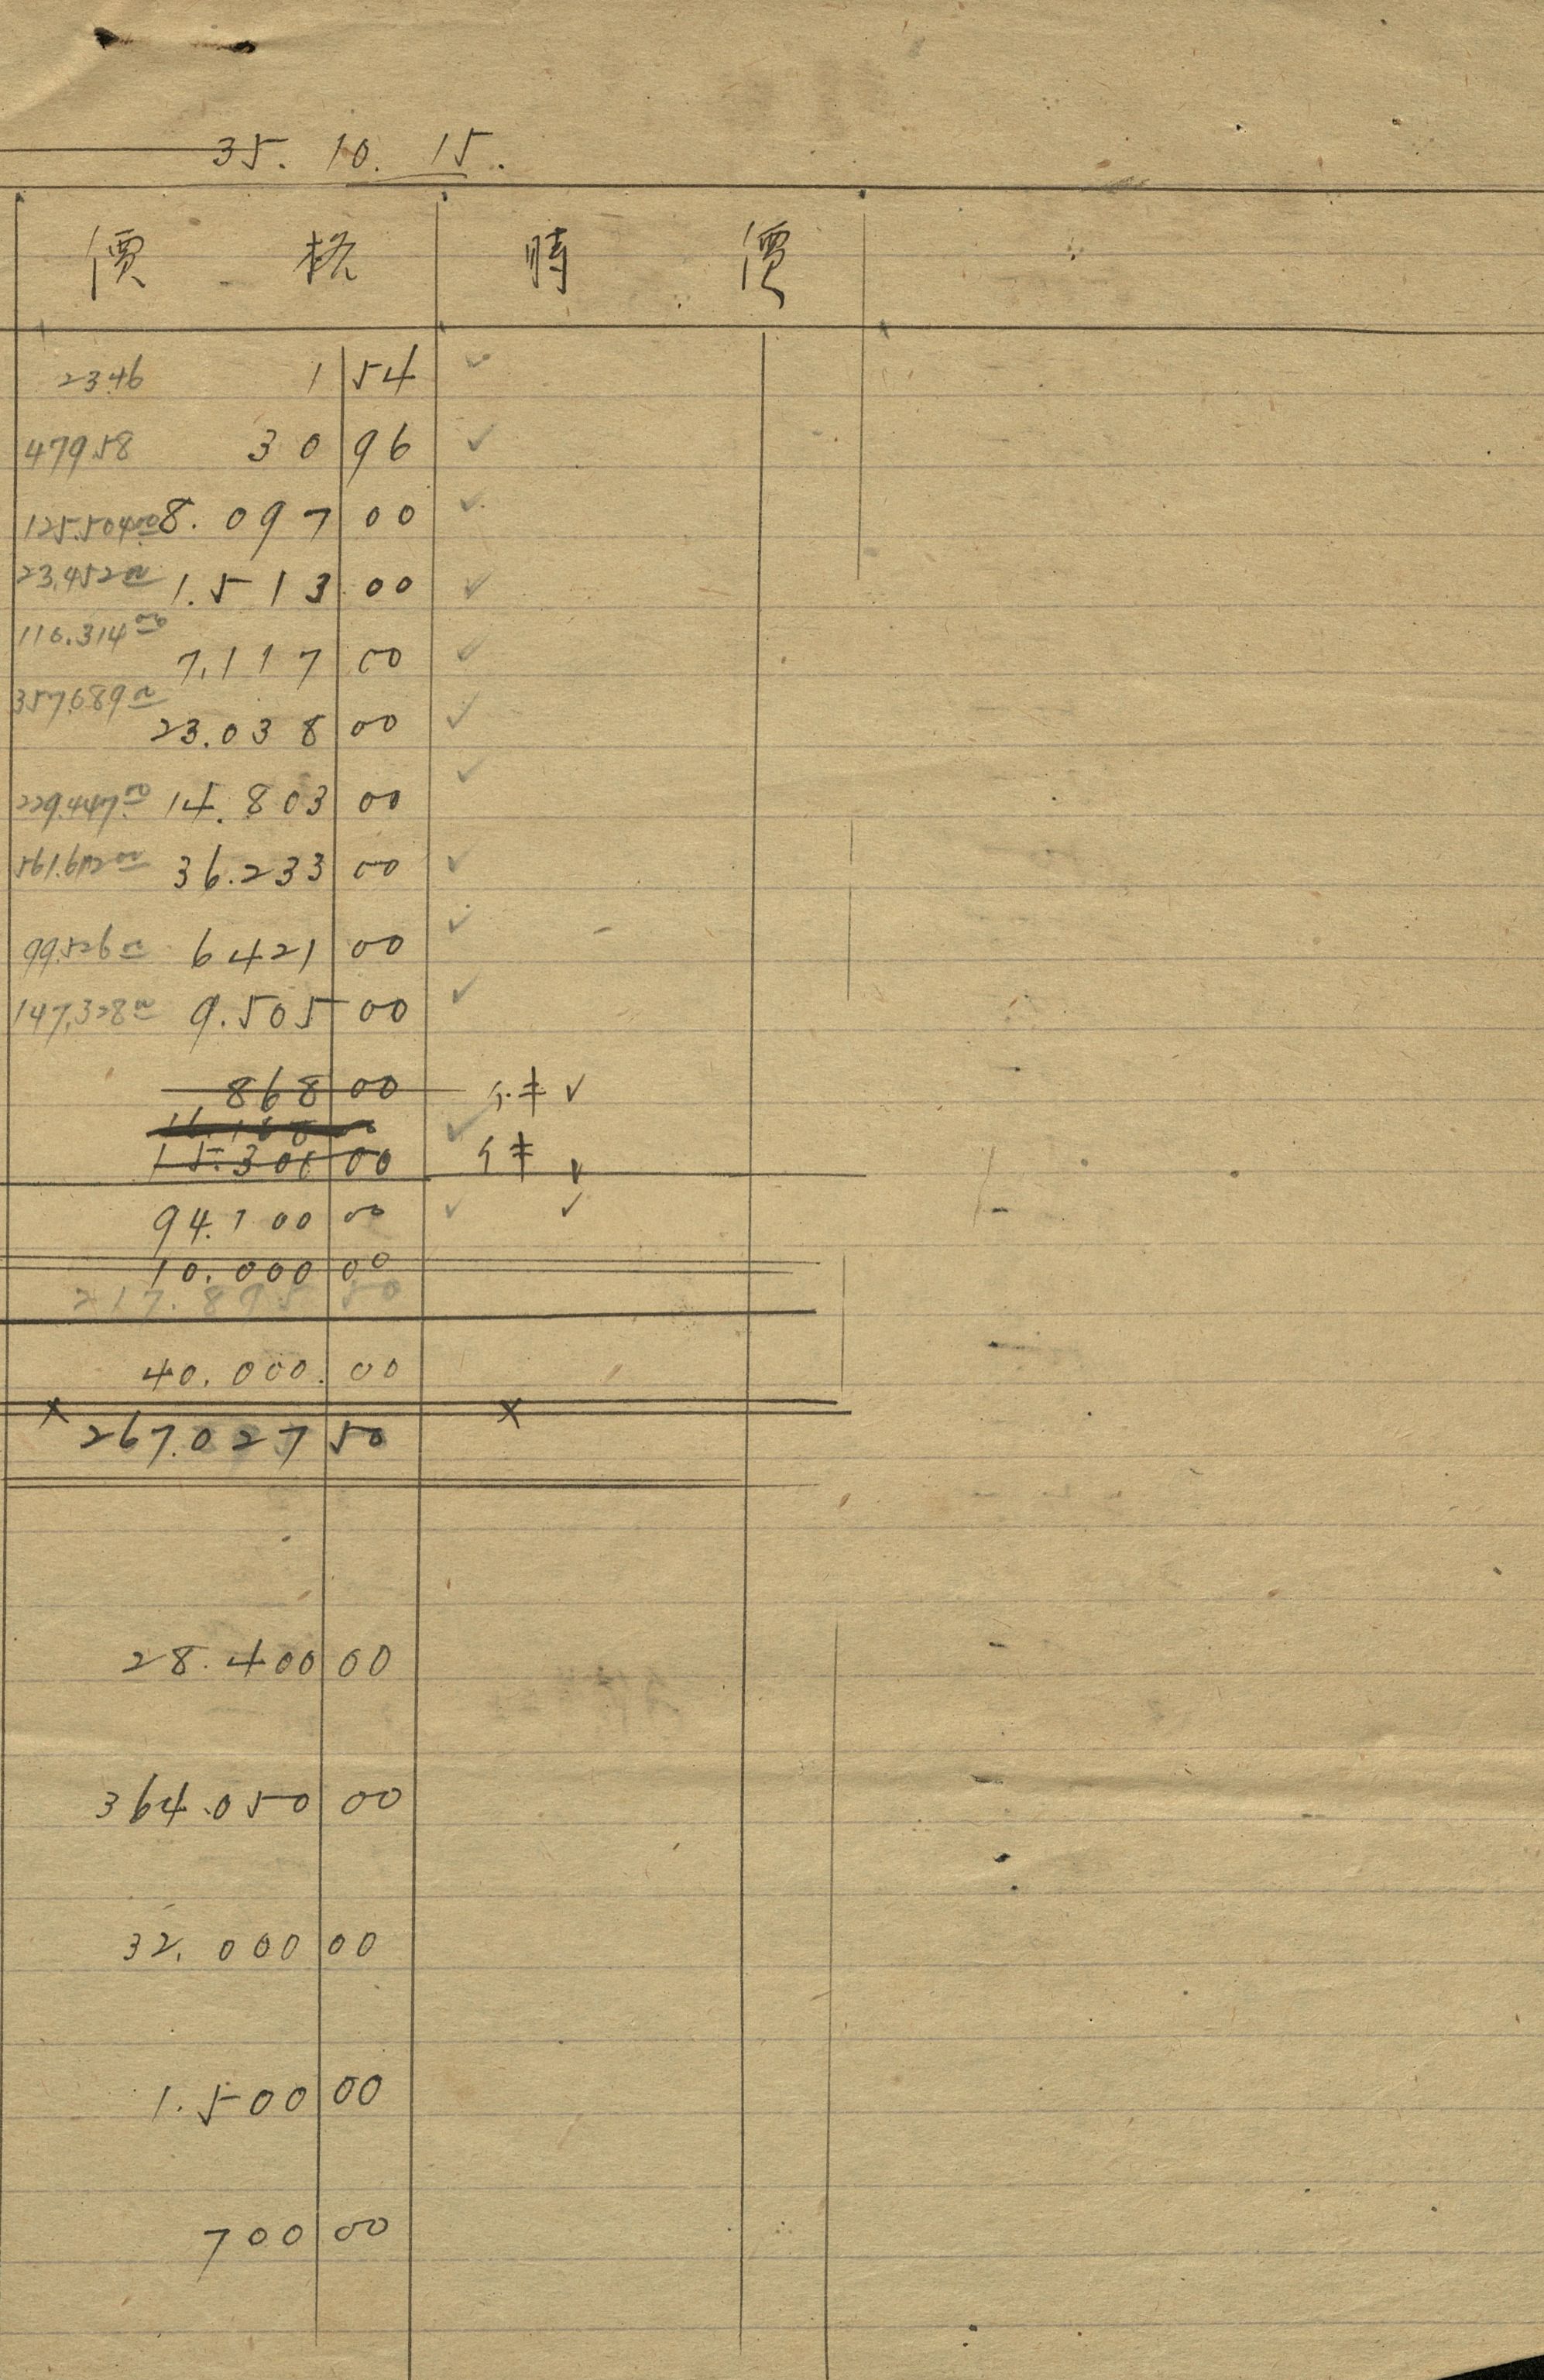 35. 10. 15.
價 格 時 價
2346 1 54 ✓
479.58 30 96 ✓
125.504.00 8.097 00 ✓
23,452.00 1.513 00 ✓
110.314.00 7.117 00 ✓
357.689.00 23.038 00 ✓
229.447.00 14.803 00 ✓
36.233 00 ✓
99.526.00 6421 00 ✓
147,328.00 9.505 00 ✓
868 00 ✓
00 ✓
94.100 00 ✓ ✓
10.000 00
217.895 50
40.000.00
× ×
267.027 50
28.400 00
364.050 00
32.000 00
1.500 00
700 00